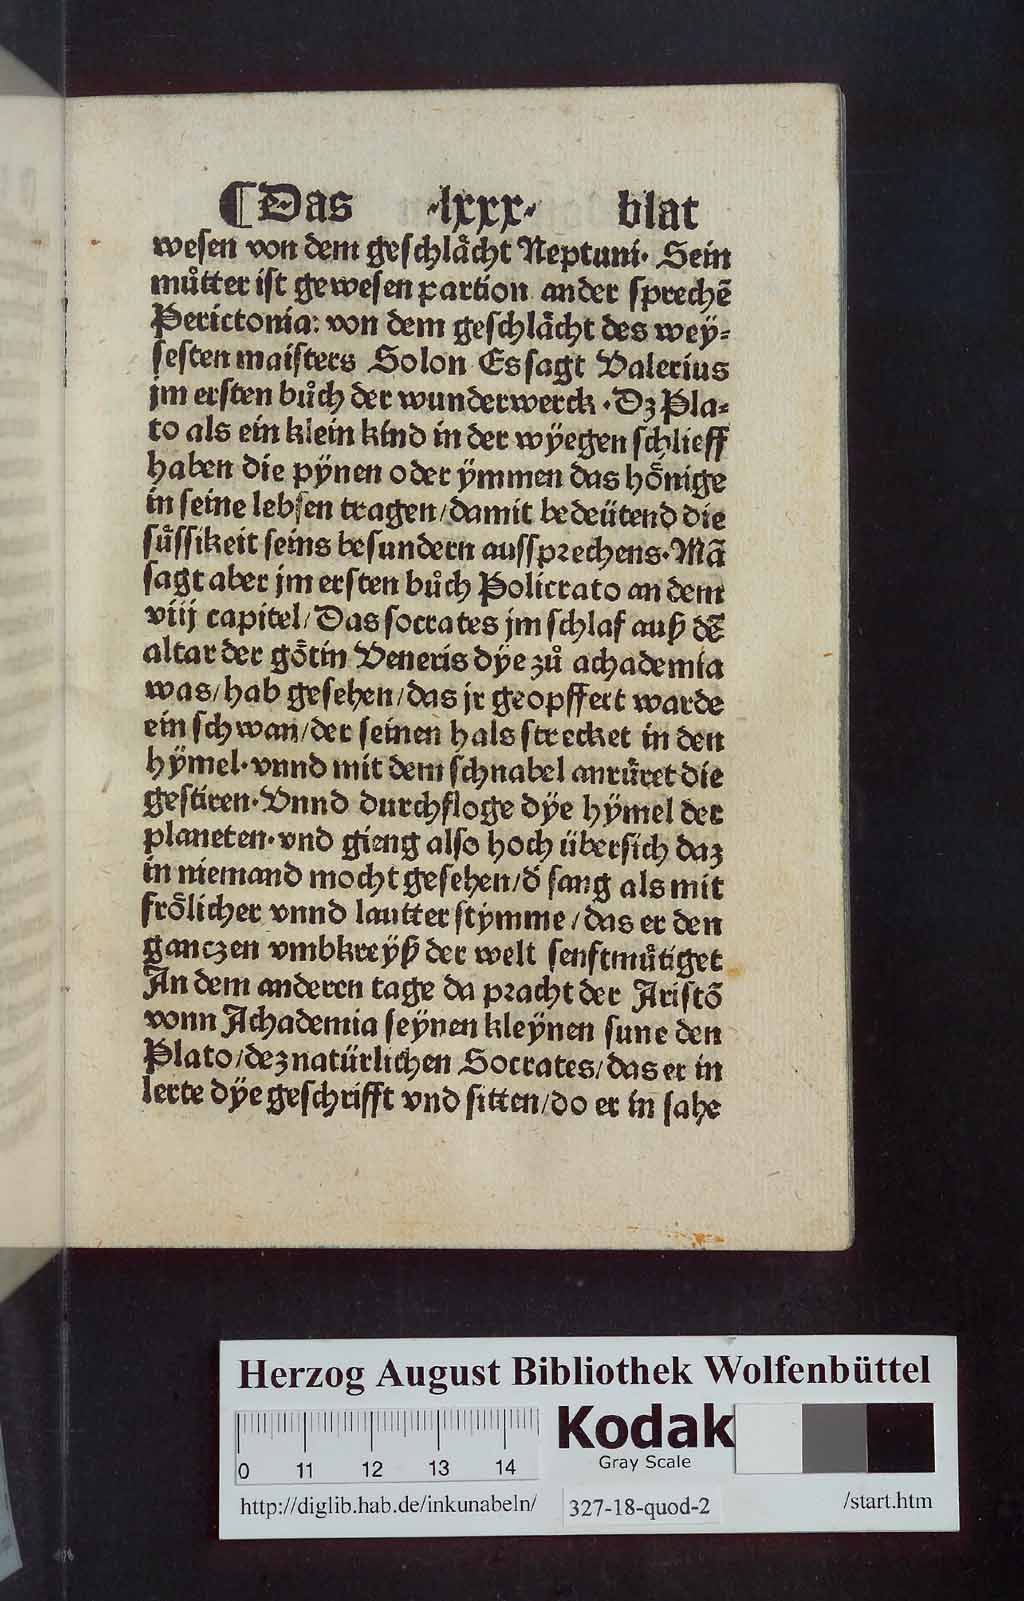 ¶Das ·lxxx· blat
wesen von dem geschlaͤcht Neptuni. Sein
muͤtter ist gewesen partion ander sprechē
Perictonia: von dem geschlaͤcht des wey⸗
sesten maisters Solon Es sagt Valerius
jm ersten buͦch der wunderwerck. Dz Pla⸗
to als ein klein kind in der wÿegen schlieff
haben die pÿnen oder ÿmmen das hoͤnige
in seine lebsen tragen/damit bedeütend die
suͤssikeit seins besundern aussprechens. Mā
sagt aber jm ersten buͦch Policrato an dem
viij capitel/Das socrates jm schlaf auß dē
altar der goͤtin Veneris dÿe zuͦ achademia
was/hab gesehen/das jr geopffert warde
ein schwan/der seinen hals strecket in den
hÿmel. vnnd mit dem schnabel anruͤret die
gestiren. Vnnd durchfloge dÿe hÿmel der
planeten. vnd gieng also hoch übersich daz
in niemand mocht gesehen/d̕ sang als mit
froͤlicher vnnd lautter stÿmme/das er den
ganczen vmbkreÿß der welt senftmuͤtiget
In dem anderen tage da pracht der Aristō
vonn Achademia seÿnen kleÿnen sune den
Plato/dez natürlichen Socrates/das er in
lerte dÿe geschrifft vnd sitten/do er in sahe
Herzog August Bibliothek Wolfenbüttel
0 11 12 13 14
Kodak
Gray Scale
http://diglib.hab.de/inkunabeln/ 327-18-quod-2 /start.htm